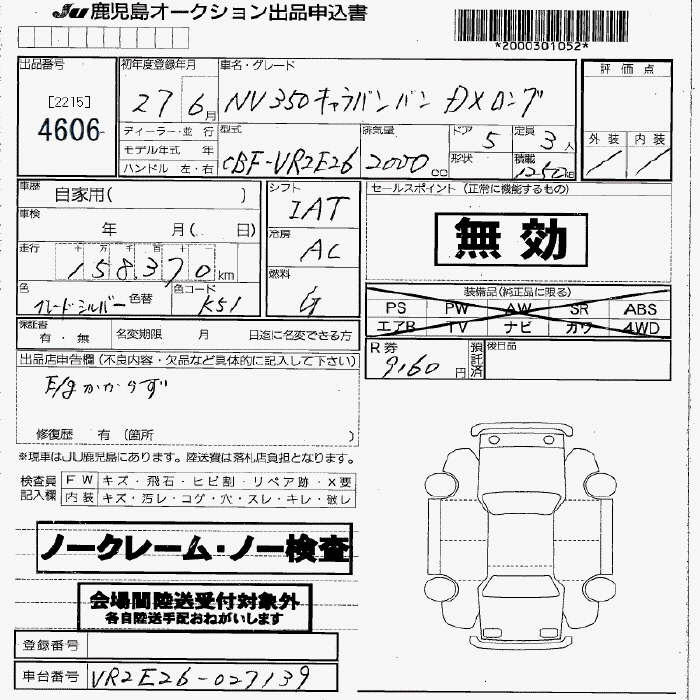 JU 鹿児島オークション出品申込書
*2000301052*
出品番号
[2215]
4606
初年度登録年月
27 6月
車名・グレード
NV350キャラバンバン DXロング
評価点
外装 内装
ディーラー・並行
モデル年式 年
ハンドル 左・右
型式
CBF-VR2E26
排気量
2000 cc
ドア 5
形状
定員 3人
積載
1250kg
車歴 自家用( )
車検
年 月( 日)
走行 十万千百十一
158,370 km
色
色替
色コード
K51
シフト
IAT
冷房
AC
燃料
G
セールスポイント (正常に機能するもの)
無効
装備品(純正品に限る)
PS PW AW SR ABS
エアB TV ナビ カワ 4WD
保証書
有・無
名変期限 月 日迄に名変できる方
R券
9,160円
預託済
後日品
出品店申告欄(不良内容・欠品など具体的に記入して下さい)
E/gかからず
修復歴 有 (箇所 )
※現車はJU鹿児島にあります。陸送費は落札店負担となります。
検査員記入欄
FW キズ・飛石・ヒビ割・リペア跡・X要
内装 キズ・汚レ・コゲ・穴・スレ・キレ・破レ
ノークレーム・ノー検査
会場間陸送受付対象外
各自陸送手配おねがいします
登録番号
車台番号 VR2E26-027139